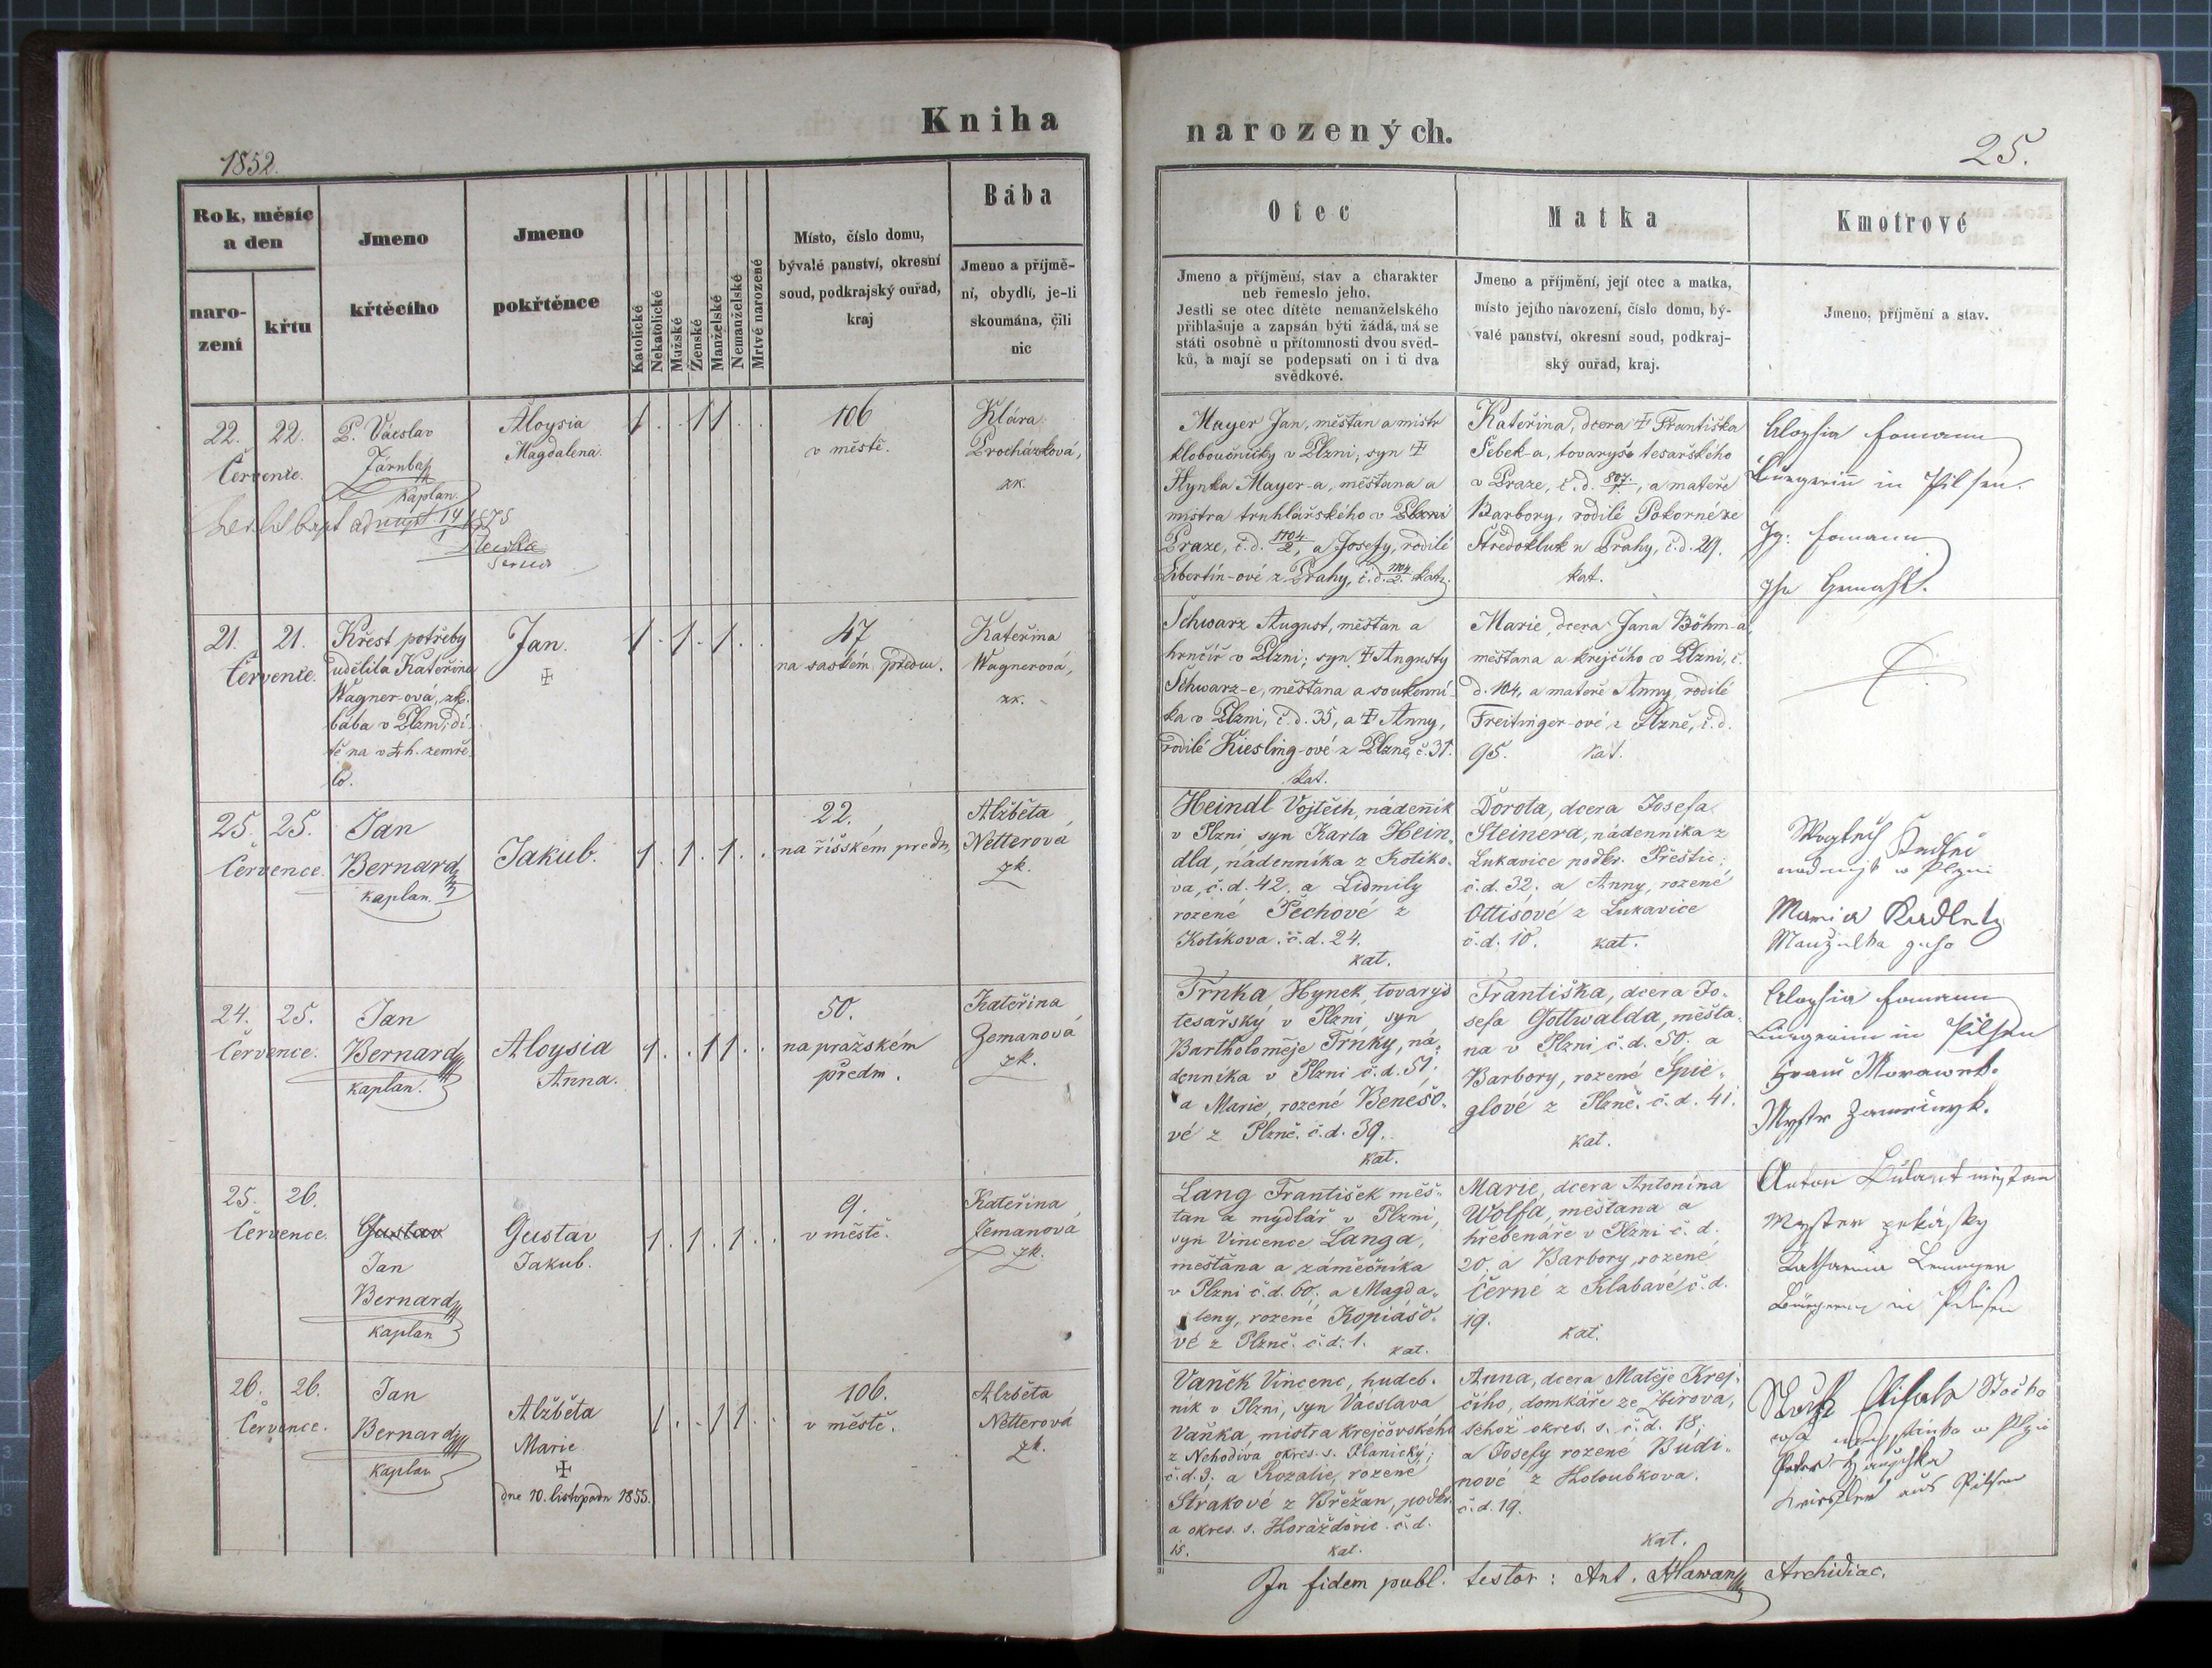 Kniha
1852.
Rok, měsíc
a den
naro-
zení
křtu
Jmeno
křtěcího
Jmeno
pokřtěnce
Katolické
Nekatolické
Mužské
Ženské
Manželské
Nemanželské
Mrtvé narozené
Místo, číslo domu,
bývalé panství, okresní
soud, podkrajský ouřad,
kraj
Bába
Jmeno a příjmě-
ní, obydlí, je-li
skoumána, čili
nic
22. 22.
Července.
P. Václav
Kaplan.
Aloysia
Magdalena.
1 . . 1 1 . .
106
v městě.
Klára
Procházková,
zk.
21. 21.
Července.
Křest potřeby
udělila Kateřina
Wagner-ová, zk.
bába v Plzni; dí-
tě na zemře-
lo.
Jan.
1 . 1 . 1 . .
47
na saském předm.
Kateřina
Wagnerová,
zk.
25. 25.
Července.
Jan
Bernard
kaplan.
Jakub.
1 . 1 . 1 . .
22.
na říšském předm.
Alžběta
Netterová
zk.
24. 25.
Července.
Jan
Bernard
kaplan.
Aloysia
Anna.
1 . . 1 1 . .
50.
na pražském
předm.
Kateřina
Zemanová
zk.
25. 26.
Července.
Gustav
Jan
Bernard
kaplan
Gustav
Jakub.
1 . 1 . 1 . .
9.
v městě.
Kateřina
Zemanová
zk.
26. 26.
Července.
Jan
Bernard
kaplan
Alžběta
Marie
dne 10. listopadu 1855.
1 . . 1 1 . .
106.
v městě.
Alžběta
Netterová
zk.
narozených.
25.
Otec
Jmeno a příjmění, stav a charakter
neb řemeslo jeho.
Jestli se otec dítěte nemanželského
přihlašuje a zapsán býti žádá, má se
státi osobně u přítomnosti dvou svěd-
ků, a mají se podepsati on i ti dva
svědkové.
Matka
Jmeno a příjmění, její otec a matka,
místo jejího narození, číslo domu, bý-
valé panství, okresní soud, podkraj-
ský ouřad, kraj.
Kmotrové
Jmeno, příjmění a stav.
Mayer Jan, měšťan a mistr
kloboučnický v Plzni, syn
Hynka Mayer-a, měšťana a
mistra truhlářského v Plzni
Praze, č.d. 1104/2, a Josefy, rodilé
Libertín-ové z Prahy, č.d. 1104/2. kat.
Kateřina, dcera Františka
Šebek-a, tovaryše tesařského
v Praze, č.d. 807, a mateře
Barbory, rodilé Pokorné ze
Středokluk u Prahy, č.d. 29.
kat.
Aloysia
Bürgerin in Pilsen.
Ihr Gemahl.
Schwarz August, měšťan a
hrnčíř v Plzni; syn Augusty
Schwarz-e, měšťana a soukenní-
ka v Plzni, č.d. 35, a Anny,
rodilé Kiesling-ové z Plzně, č. 31.
kat.
Marie, dcera Jana Böhm-a,
měšťana a krejčího v Plzni, č.
d. 104, a mateře Anny, rodilé
Freitinger-ové z Plzně, č.d.
95. kat.
Heindl Vojtěch, nádenník
v Plzni, syn Karla Hein-
dla, nádenníka z Kotíko-
va, č.d. 42. a Lidmily
rozené Pechové z
Kotíkova. č.d. 24.
kat.
Dorota, dcera Josefa
Steinera, nádenníka z
Lukavice podkr. Přeštic;
č.d. 32. a Anny, rozené
Ottisové z Lukavice
č.d. 10. kat.
Maria Radletz
Manzielka geho
Trnka, Hynek, tovaryš
tesařský v Plzni, syn
Bartholoměje Trnky, ná-
denníka v Plzni č.d. 51;
a Marie, rozené Benešo-
vé z Plzně. č.d. 39.
kat.
Františka, dcera Jo-
sefa Gottwalda, měšťa-
na v Plzni, č.d. 50. a
Barbory, rozené Spie-
glové z Plzně. č.d. 41.
kat.
Aloysia
Bürgerin in Pilsen
Lang František měš-
ťan a mydlář v Plzni,
syn Vincence Langa,
měšťana a zámečníka
v Plzni č.d. 60. a Magda-
leny, rozené Kopiášo-
vé z Plzně. č.d. 1. kat.
Marie, dcera Antonína
Wolfa, měšťana a
hřebenáře v Plzni č.d.
20. a Barbory, rozené
Černé z Klabavé, č.d.
19.
kat.
Anton
Katharina
Bürgerin in Pilsen
Vaněk Vincenc, hudeb-
ník v Plzni, syn Václava
Vaňka, mistra krejčovského
z Nehodiva okres. s. Planický;
č.d. 9. a Rozalie, rozené
Strakové z Břežan, podkr.
a okres. s. Horažďovic. č.d.
15. kat.
Anna, dcera Matěje Krej-
čího, domkáře ze Zbirova,
téhož okres. s. č.d. 18;
a Josefy rozené Budi-
nové z Holoubkova.
č.d. 19.
kat.
aus Pilsen
In fidem publ. testor: Ant. Hlawan Archidiac.